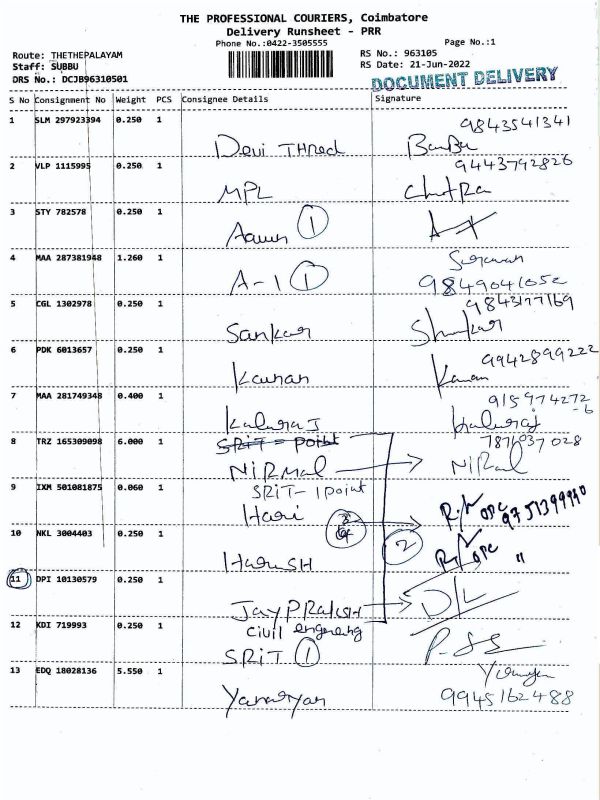 THE PROFESSIONAL COURIERS, Coimbatore
Delivery Runsheet - PRR
Phone No.:0422-3505555 Page No.:1
Route: THETHEPALAYAM RS No.: 963105
Staff: SUBBU RS Date: 21-Jun-2022
DRS No.: DCJB96310501 DOCUMENT DELIVERY
S No Consignment No Weight PCS Consignee Details Signature
1 SLM 297923394 0.250 1 9843541341
Devi THred Banbu
2 VLP 1115995 0.250 1 9443792826
MPL Chitra
3 STY 782578 0.250 1
1
4 MAA 287381948 1.260 1
A-1 1 9849041052
5 CGL 1302978 0.250 1 9843177169
Sankar Shankar
6 PDK 6013657 0.250 1 9942899222
Kannan Kanan
7 MAA 281749348 0.400 1 915974272-6
Kaluraj Kaluraj
8 TRZ 165309098 6.000 1 SRIT - Point 7871037028
NIRMAL Nirmal
9 IXM 501081875 0.060 1 SRIT - 1 Point
Hari 9751399990
10 NKL 3004403 0.250 1 2 "
HariSH
11 DPI 10130579 0.250 1
JayPRakSH D/L
12 KDI 719993 0.250 1 civil
SRIT 1
13 EDQ 18028136 5.550 1
9945162488